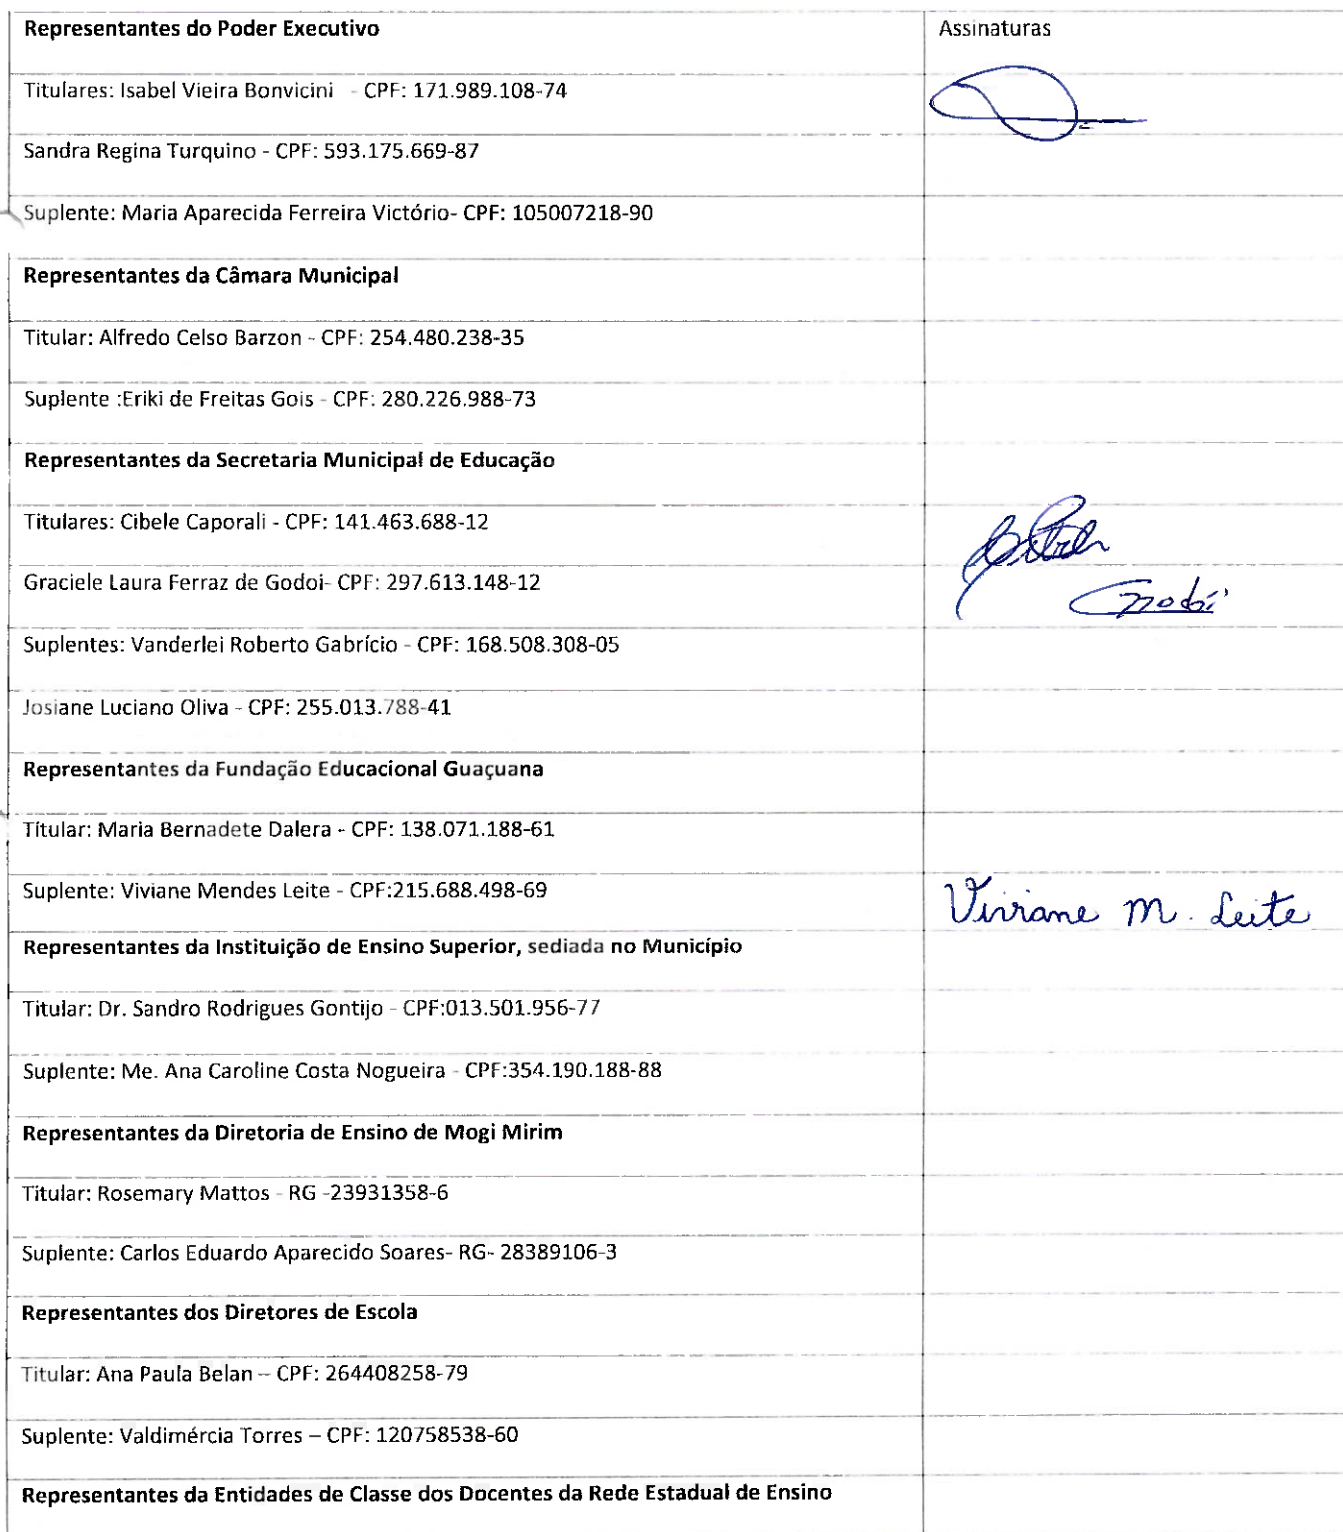 Representantes do Poder Executivo Assinaturas
Titulares: Isabel Vieira Bonvicini - CPF: 171.989.108-74
Sandra Regina Turquino - CPF: 593.175.669-87
Suplente: Maria Aparecida Ferreira Victório- CPF: 105007218-90
Representantes da Câmara Municipal
Titular: Alfredo Celso Barzon - CPF: 254.480.238-35
Suplente :Eriki de Freitas Gois - CPF: 280.226.988-73
Representantes da Secretaria Municipal de Educação
Titulares: Cibele Caporali - CPF: 141.463.688-12
Graciele Laura Ferraz de Godoi- CPF: 297.613.148-12 Godoi
Suplentes: Vanderlei Roberto Gabrício - CPF: 168.508.308-05
Josiane Luciano Oliva - CPF: 255.013.788-41
Representantes da Fundação Educacional Guaçuana
Titular: Maria Bernadete Dalera - CPF: 138.071.188-61
Suplente: Viviane Mendes Leite - CPF:215.688.498-69 Viviane M. Leite
Representantes da Instituição de Ensino Superior, sediada no Município
Titular: Dr. Sandro Rodrigues Gontijo - CPF:013.501.956-77
Suplente: Me. Ana Caroline Costa Nogueira - CPF:354.190.188-88
Representantes da Diretoria de Ensino de Mogi Mirim
Titular: Rosemary Mattos - RG -23931358-6
Suplente: Carlos Eduardo Aparecido Soares- RG- 28389106-3
Representantes dos Diretores de Escola
Titular: Ana Paula Belan – CPF: 264408258-79
Suplente: Valdimércia Torres – CPF: 120758538-60
Representantes da Entidades de Classe dos Docentes da Rede Estadual de Ensino